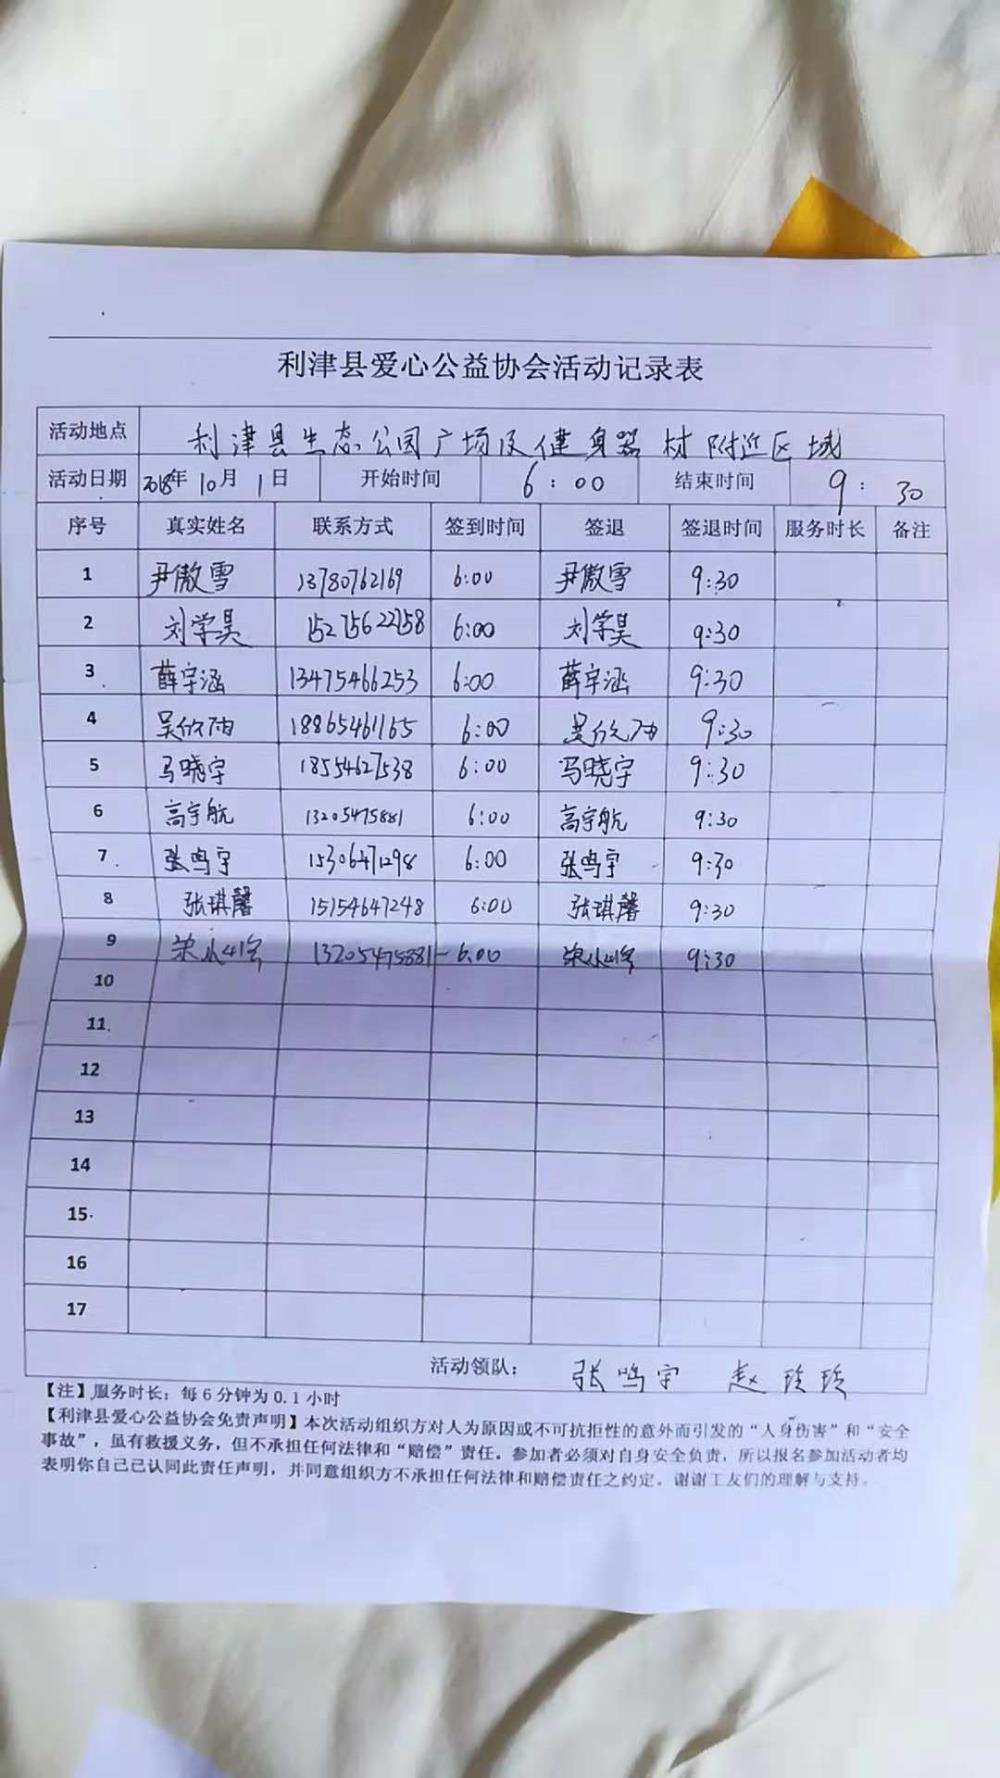 利津县爱心公益协会活动记录表
活动地点 利津县生态公园广场及健身器材附近区域
活动日期 2018年 10月 1日 开始时间 6:00 结束时间 9:30
序号 真实姓名 联系方式 签到时间 签退 签退时间 服务时长 备注
1 尹傲雪 13780762169 6:00 尹傲雪 9:30
2 刘学昊 15275622758 6:00 刘学昊 9:30
3 薛宇涵 13475466253 6:00 薛宇涵 9:30
4 18865461165 6:00 9:30
5 马晓宇 18554627538 6:00 马晓宇 9:30
6 高宇航 13205475881 6:00 高宇航 9:30
7 张鸣宇 15306471298 6:00 张鸣宇 9:30
8 张琪馨 15154647248 6:00 张琪馨 9:30
9 13205475881 6:00 9:30
10
11
12
13
14
15
16
17
活动领队: 张鸣宇 赵玲玲
【注】服务时长:每6分钟为0.1小时
【利津县爱心公益协会免责声明】本次活动组织方对人为原因或不可抗拒性的意外而引发的“人身伤害”和“安全
事故”,虽有救援义务,但不承担任何法律和“赔偿”责任。参加者必须对自身安全负责,所以报名参加活动者均
表明你自己已认同此责任声明,并同意组织方不承担任何法律和赔偿责任之约定。谢谢工友们的理解与支持。